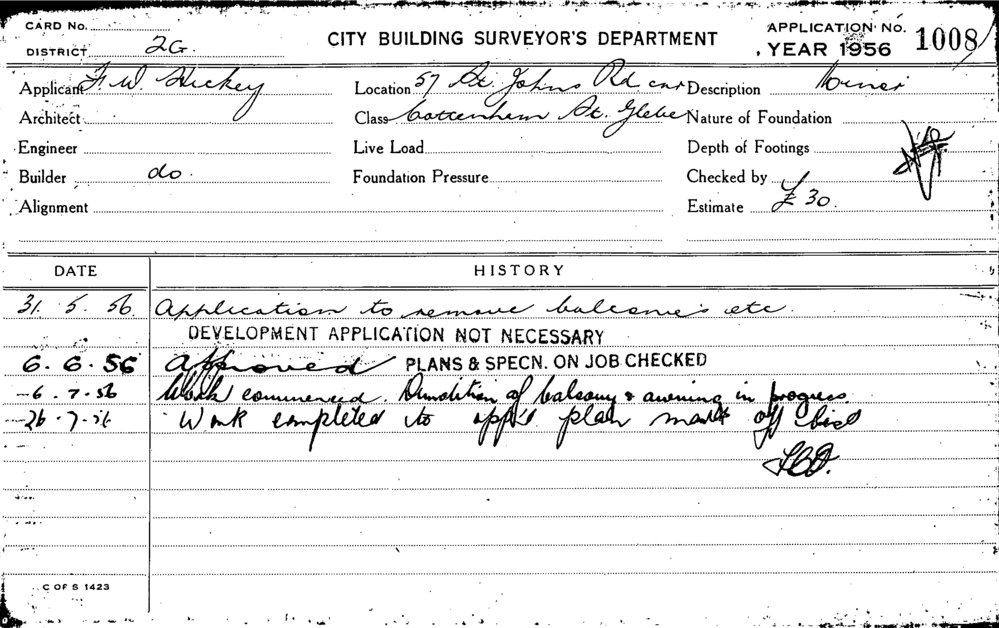 CARD No.
DISTRICT 2G.
CITY BUILDING SURVEYOR'S DEPARTMENT
APPLICATION No. 1008
YEAR 1956
Applicant F. W. Hickey
Location 57 St. Johns Rd cnr
Description Minor
Architect
Class Cottenham St. Glebe
Nature of Foundation
Engineer
Live Load
Depth of Footings
Builder do.
Foundation Pressure
Checked by
Alignment
Estimate £ 30.
DATE HISTORY
31. 5. 56. Application to remove balconies etc.
DEVELOPMENT APPLICATION NOT NECESSARY
6. 6. 56 Approved PLANS & SPECN. ON JOB CHECKED
6. 7. 56 Work commenced. Demolition of balcony & awning in progress
26. 7. 56 Work completed to app'd plan mark off
C OF S 1423